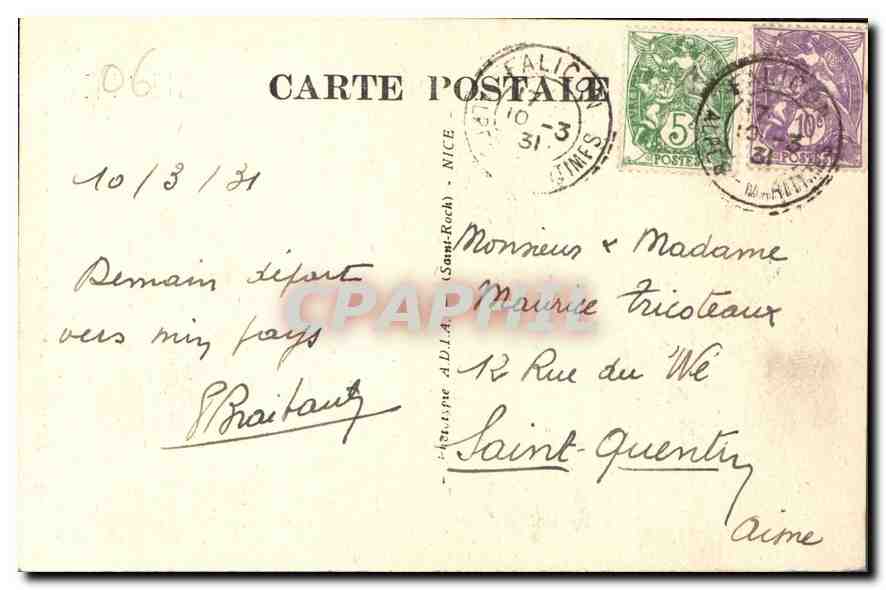 06
CARTE POSTALE
FALICON
17
10 -3
31
ALPES MARITIMES
5
POSTES
FALICON
17
10 -3
31
ALPES MARITIMES
10c
POSTES
10/3/31
Demain départ
vers mon pays
Phototypie A.D.I.A. (Saint-Roch) - NICE -
Monsieur & Madame
Maurice Tricoteaux
12 Rue du Wé
Saint-Quentin
Aisne
CPAPHIL